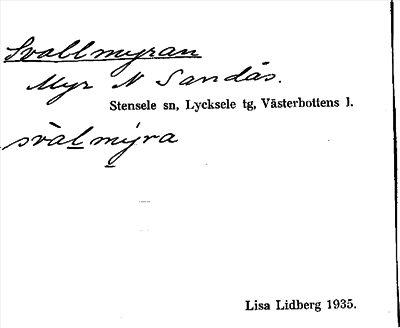 Svallmyran
Myr N Sandås.
Stensele sn, Lycksele tg, Västerbottens l.
svàl mýra
Lisa Lidberg 1935.